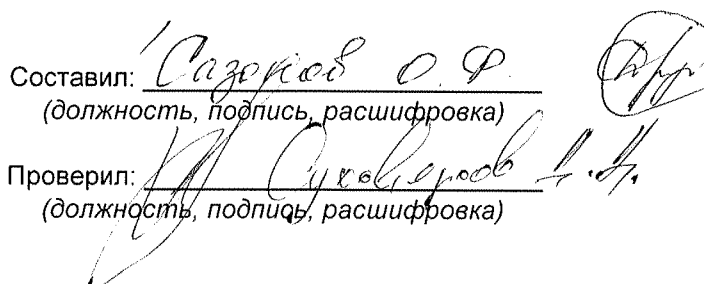 Составил: Сазонов О. Ф.
(должность, подпись, расшифровка)
Проверил:
(должность, подпись, расшифровка)